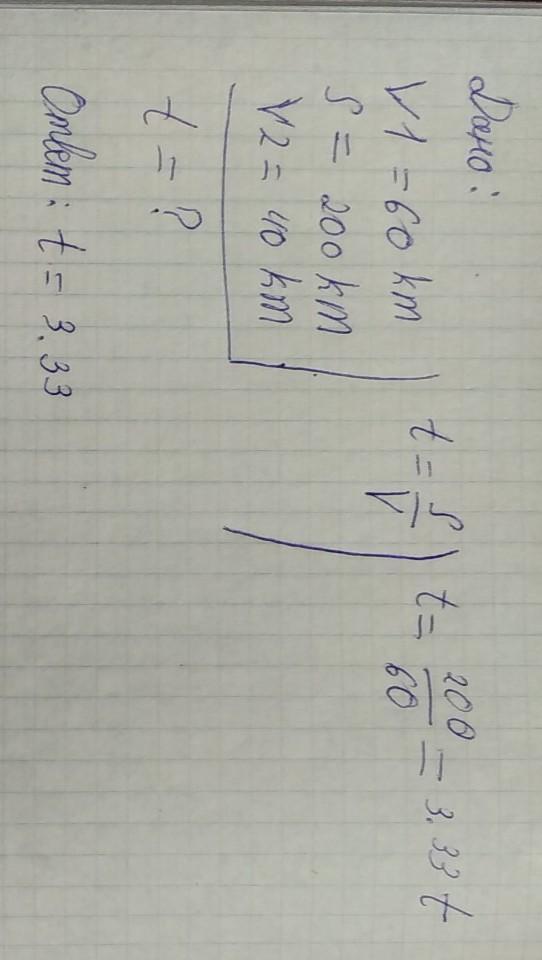 Дано:
V1 = 60 km
S = 200 km
V2 = 40 km
t = ?
t = S/V
t = 200/60 = 3.33 t
Ответ: t = 3.33